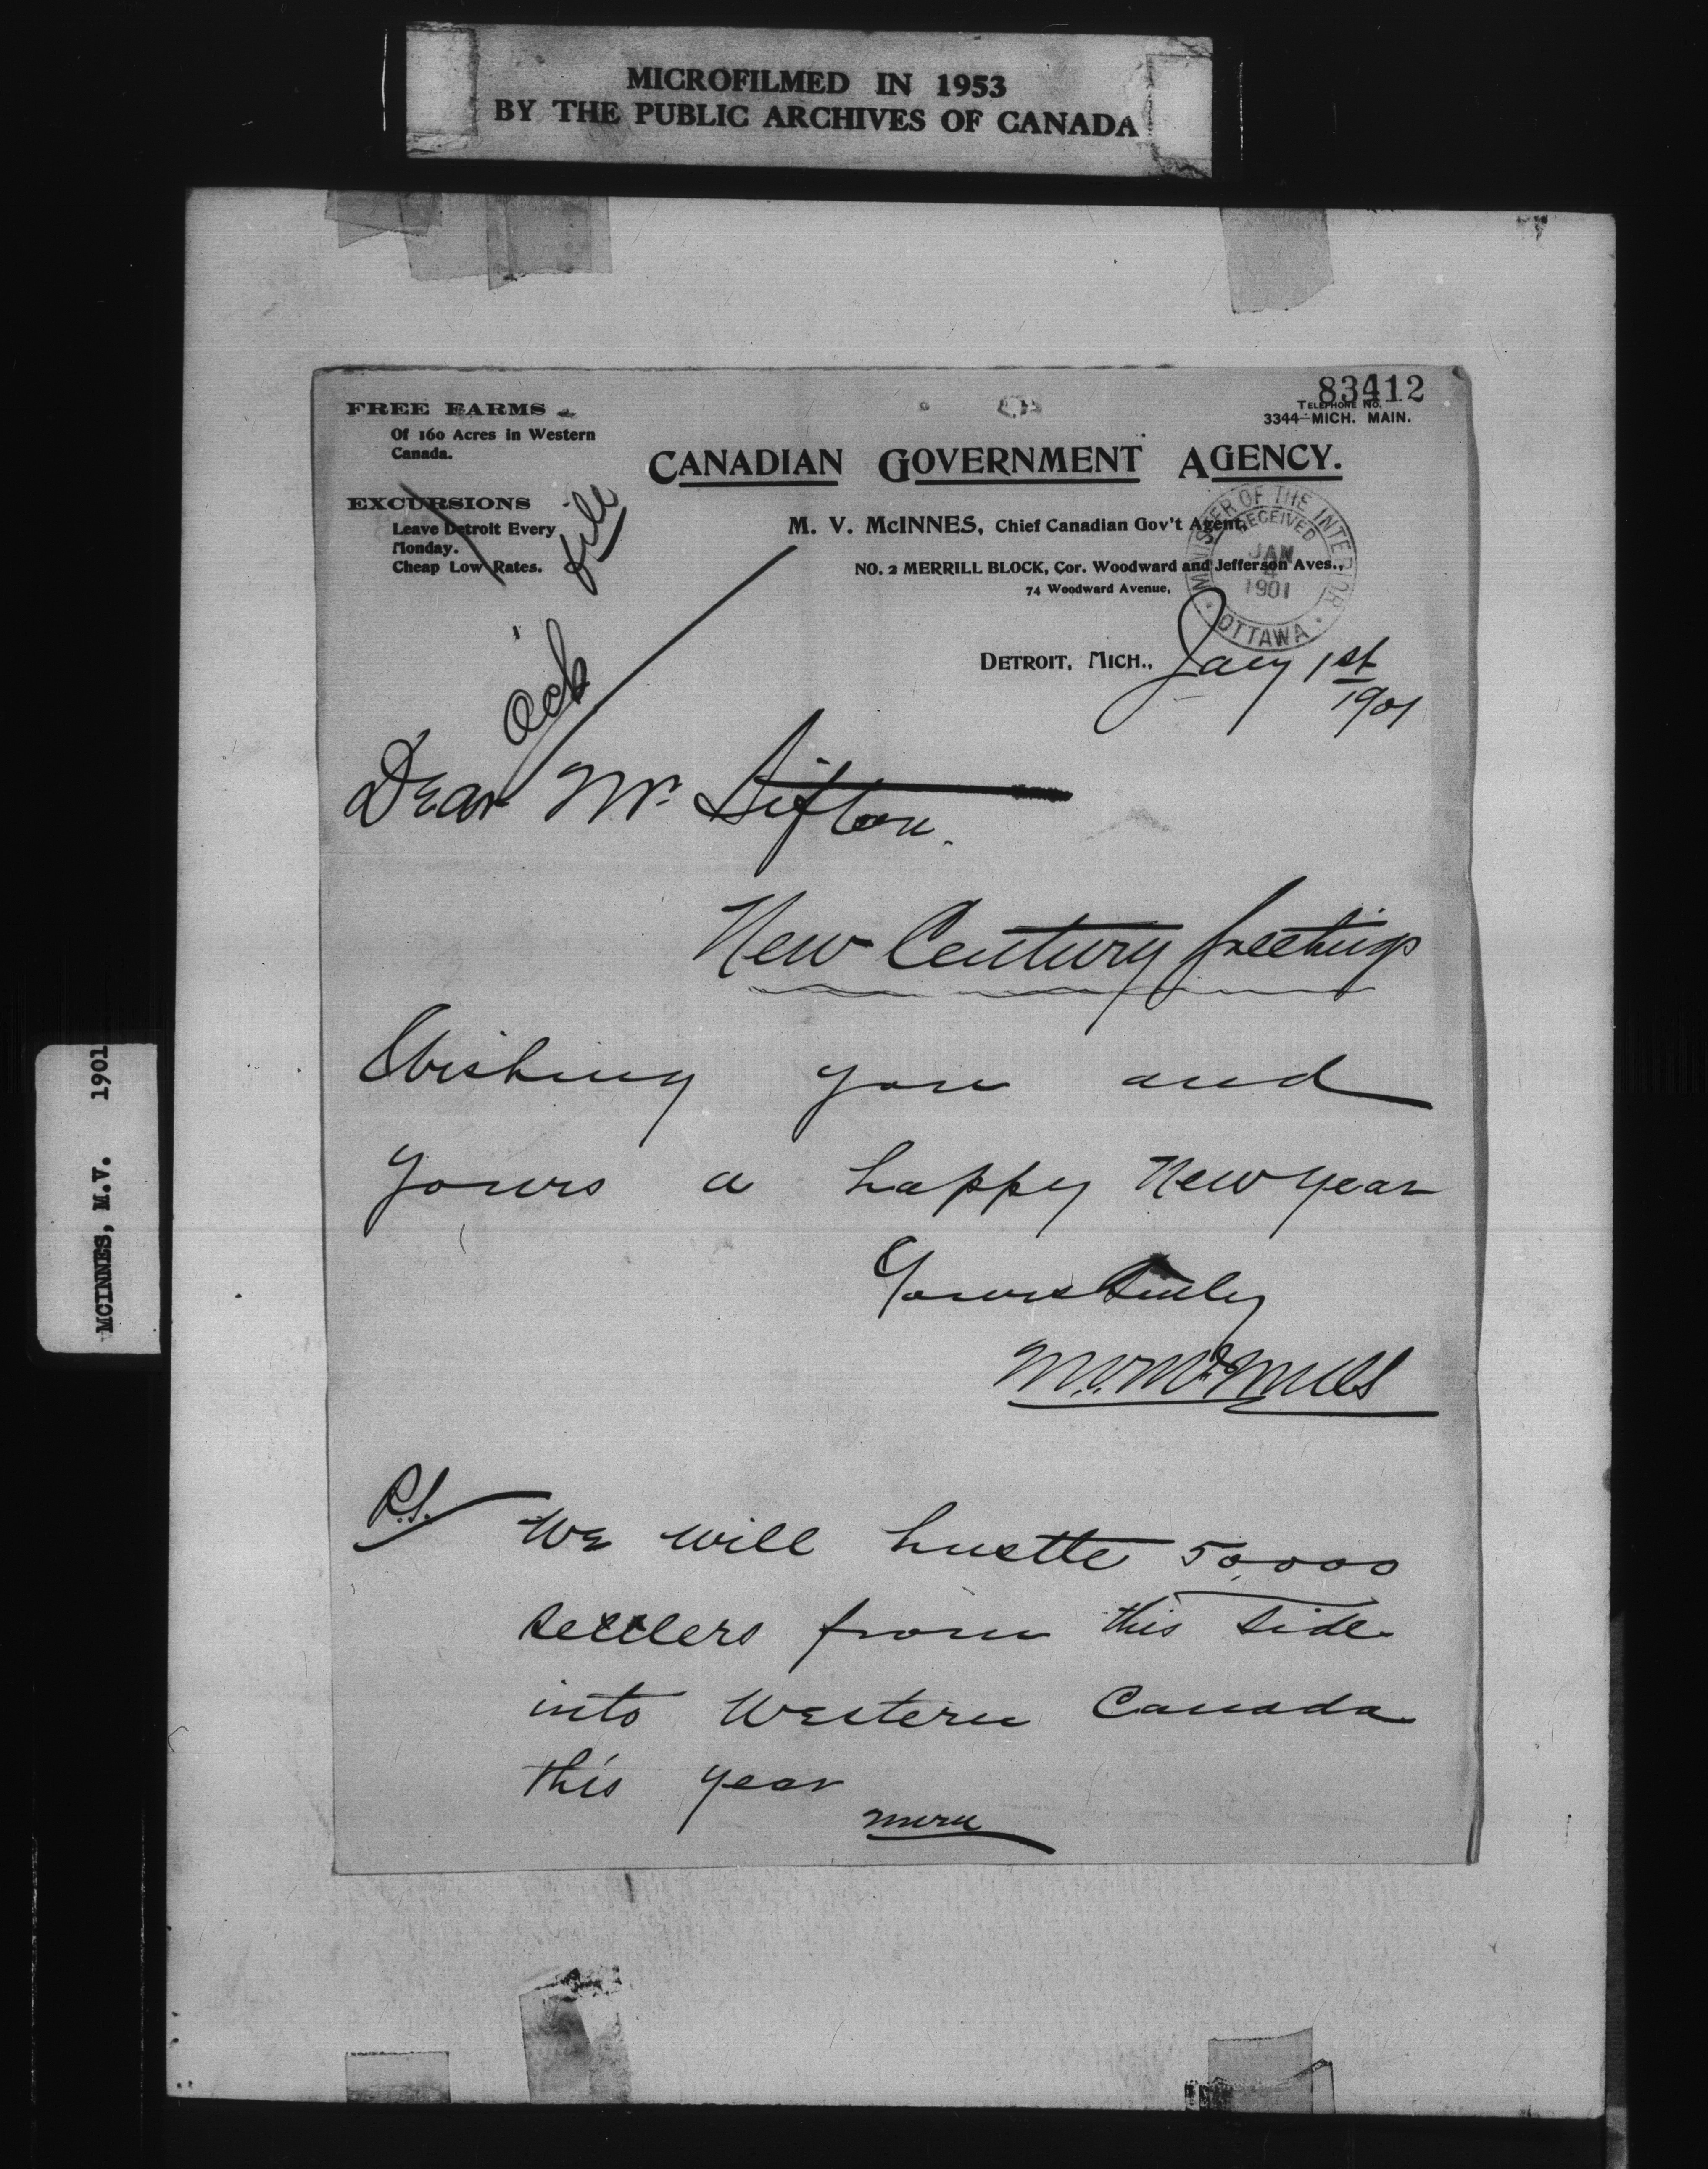 MICROFILMED IN 1953
BY THE PUBLIC ARCHIVES OF CANADA
83412
TELEPHONE NO.
3344 MICH. MAIN.
FREE FARMS
Of 160 Acres in Western
Canada.
EXCURSIONS
Leave Detroit Every
Monday.
Cheap Low Rates.
file
ack
CANADIAN GOVERNMENT AGENCY.
M. V. McINNES, Chief Canadian Gov't Agent,
NO. 2 MERRILL BLOCK, Cor. Woodward and Jefferson Aves.,
74 Woodward Avenue,
MINISTER OF THE INTERIOR
RECEIVED
JAN
4
1901
OTTAWA
DETROIT, MICH., Jany 1st
1901
Dear Mr. Sifton.
New Century Greetings
Wishing you and
yours a happy New Year
Yours truly
M.V. McInnes
P.S. We will hustle 50,000
settlers from this side
into Western Canada
this year
MCINNES, M.V. 1901